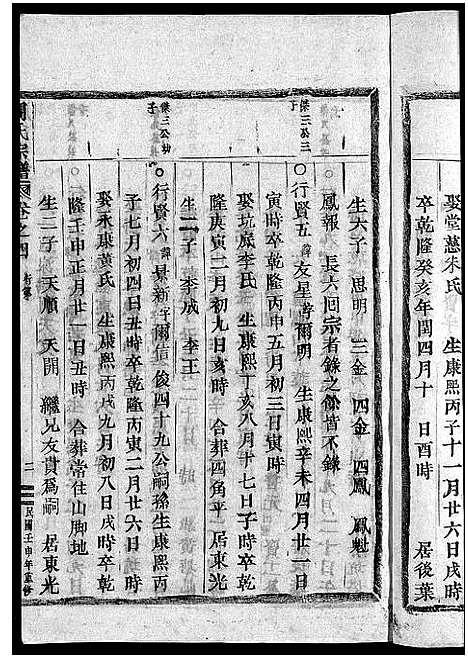 娶堂慈朱氏　生康熙丙子十一月廿六日戌時
卒乾隆癸亥年閏四月十　日酉時　居後葉
生六子　思明　三金　四金　四鳳　鳳魁
鳳報　長六回宗者錄之餘皆不錄
傑三公三子
○行賢五　諱友星　字爾明　生康熙辛未四月廿一日
寅時卒乾隆丙申五月初三日寅時
娶坑底李氏　生康熙丁亥八月十七日子時卒乾
隆庚寅二月初九日亥時　合葬四角平　居東光
生二子　李成　李王
傑三公幼子
○行賢六　諱景新　字爾信　俊四十九公嗣孫生康熙丙
子七月初四日丑時卒乾隆丙寅二月廿六日時
娶永康黃氏　生康熙丙戌九月初八日戌時卒乾
隆壬申正月廿一日丑時　合葬常住山脚地
生二子　天順　天開　繼兄友貴爲嗣　居東光
周氏宗譜　卷之四　行第　二　民國壬申年重修